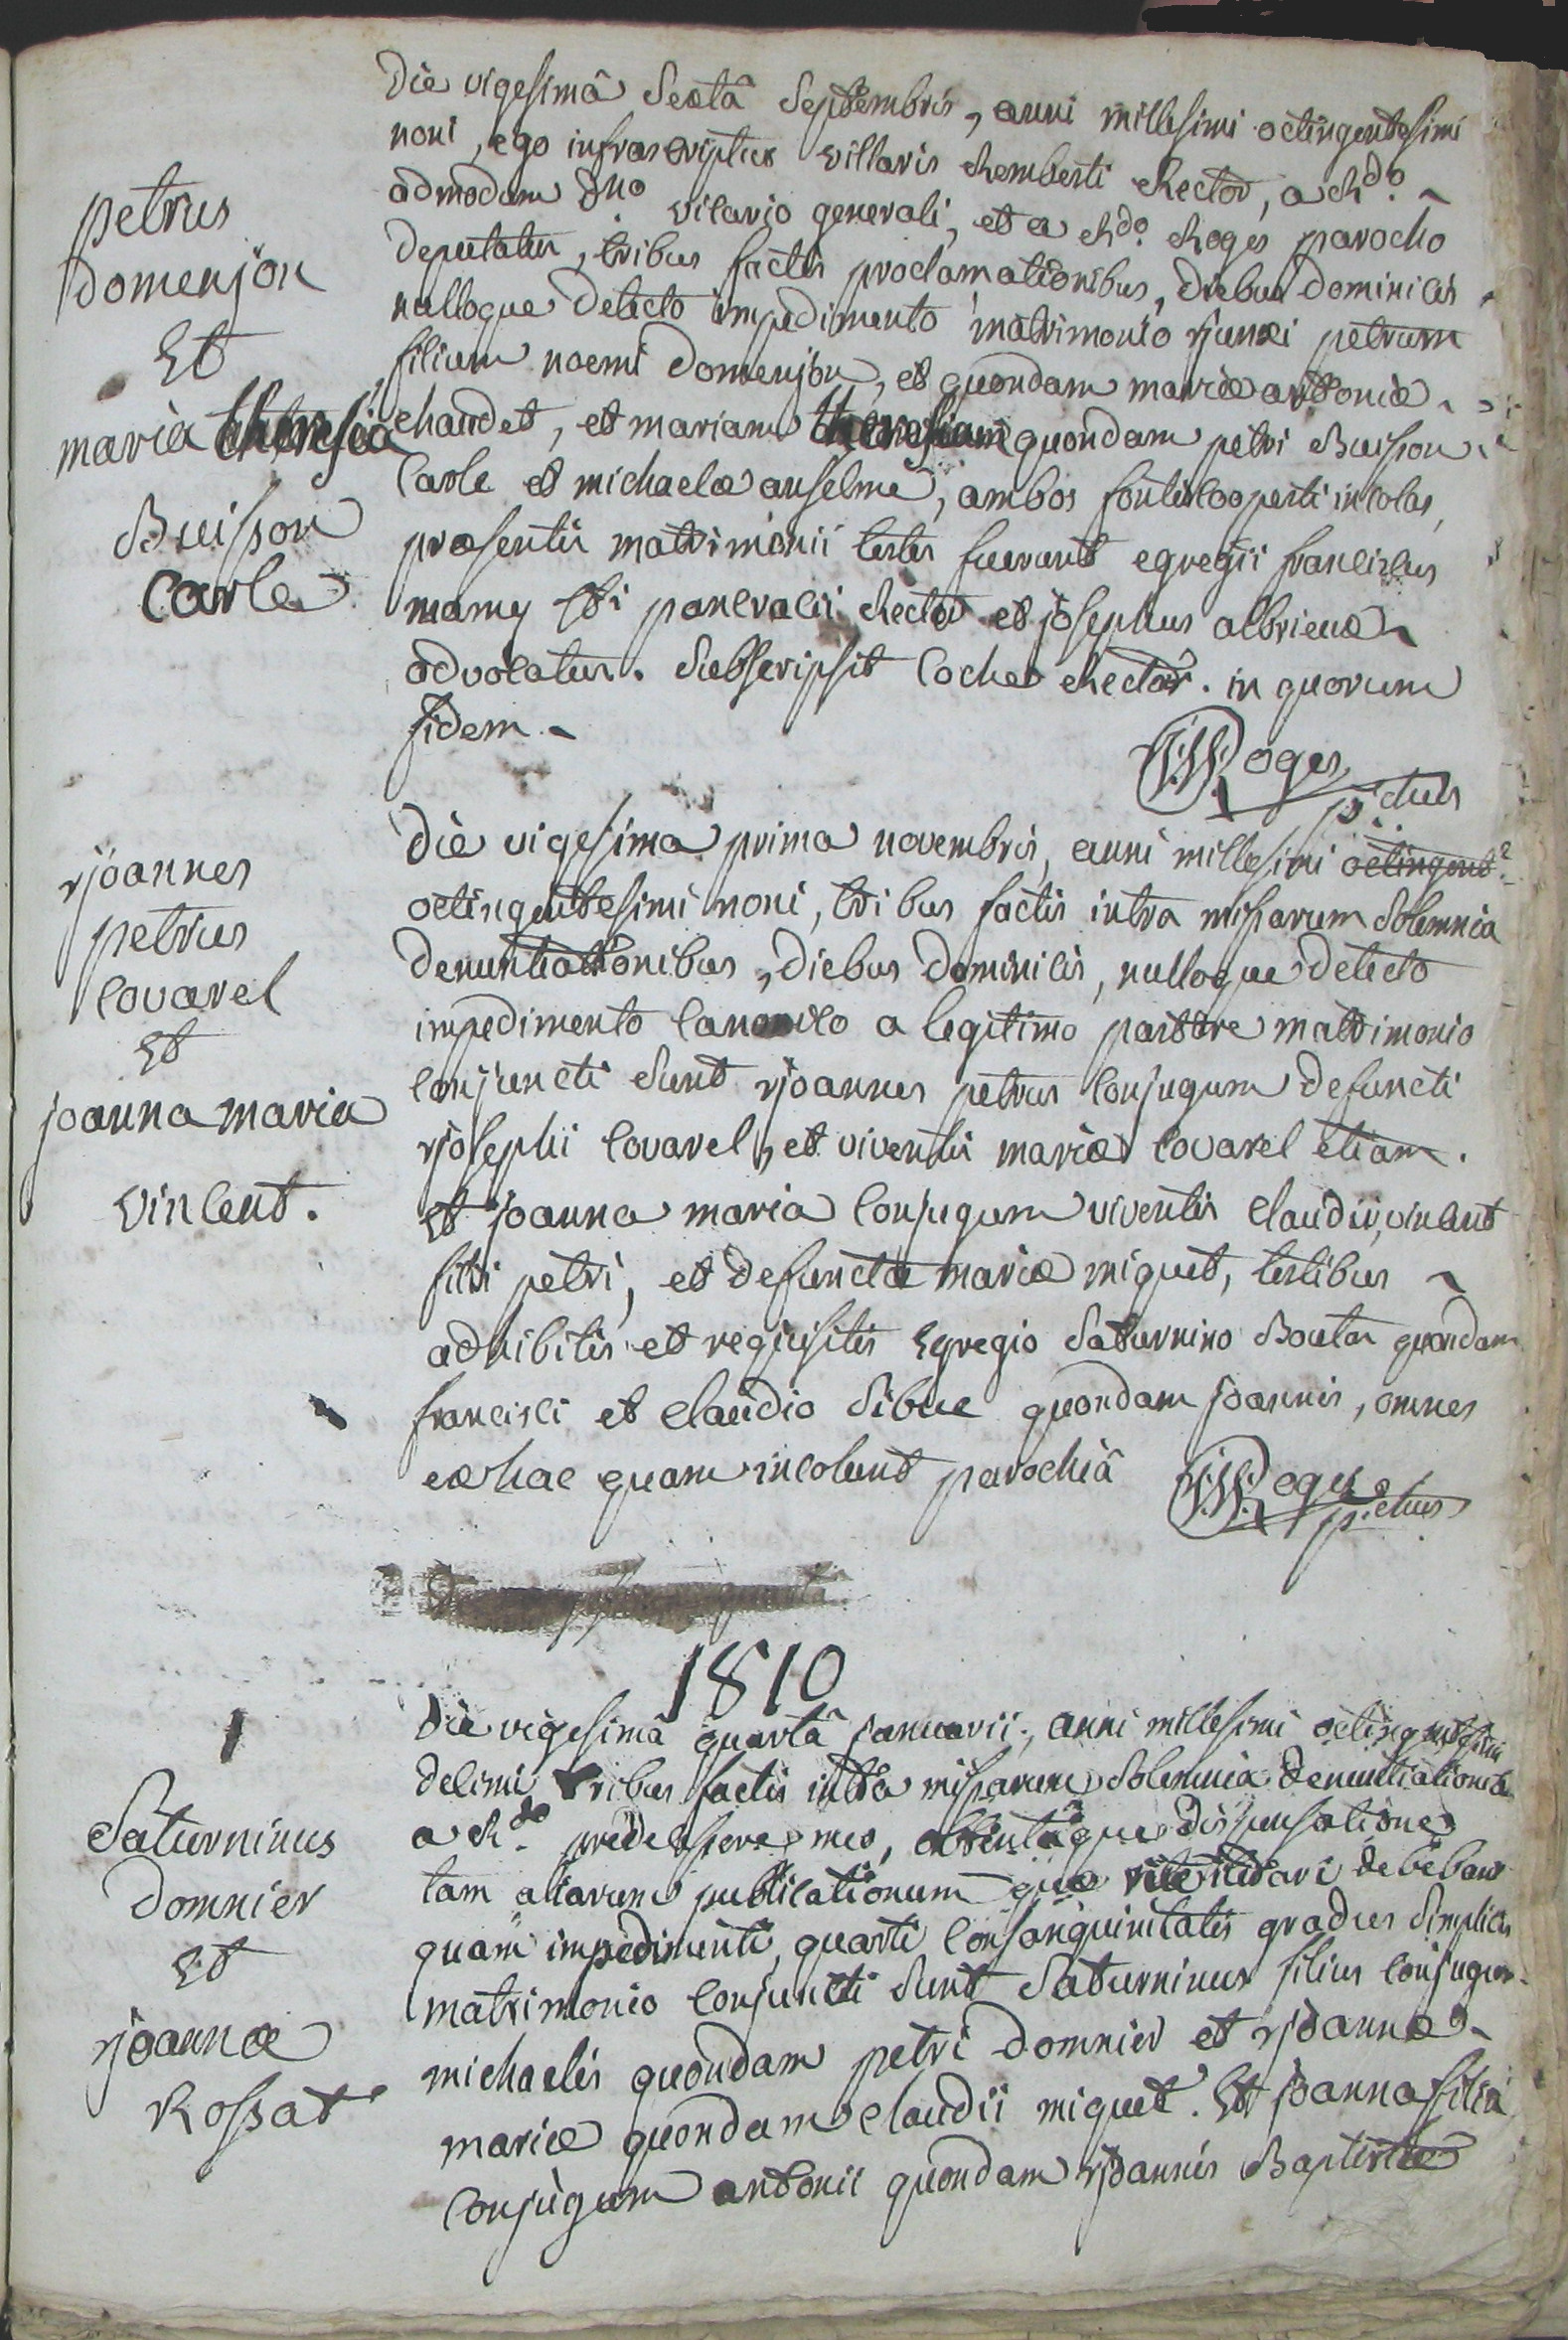 Die vigesimâ Sextâ Septembris, anni millesimi octingentesimi
noni, ego infrascriptus villaris Remberti Rector, a Rdo.
admodum Dno vicario generali, et a Rdo. Roges parocho
deputatus, tribus factis proclamationibus, diebus dominicis
nulloque detecto impedimento matrimonio junxi petrum
filium noemi Domenjon, et quondam mariæ antoniæ
chaudet, et mariam theresiam quondam petri Buisson
Carle et michaelæ anselme, ambos fontiscooperti incolas,
præsentis matrimonii testes fuerunt egregii franciscus
mamy Sti pancracii Rector et josephus albrieux
advocatus. Subscripsit Coche Rector. in quorum
fidem.
petrus
Domenjon
Et
maria theresia
Buisson
Carle
Roges
p.chus
Die vigesima prima novembris, anni millesimi octingent.
octingentesimi noni, tribus factis intra missarum Solemnia
denuntiationibus, diebus dominicis, nulloque detecto
impedimento canonico a legitimo pastore matrimonio
conjuncti Sunt joannes petrus conjugum defuncti
josephi Covarel, et viventis mariæ Covarel etiam.
Et joanna maria conjugum viventis claudii, vincent
filii petri, et defunctæ mariæ miquet, testibus
adhibitis et requisitis Egregio Saturnino Bouta quondam
francisci et claudio Sibue quondam joannis, omnes
ex hac quam incolunt parochiâ
joannes
petrus
Covarel
Et
joanna maria
vincent.
Roges
p.chus
1810
Die vigesimâ quartâ januarii, anni millesimi octingentesimi
decimi tribus factis intra missarum Solemnia denuntiationib
a Rdo. prædecessore meo, obtentâque dispensatione
tam aliarum publicationum quæ rite iterari debebant
quam impedimenti quarti consanguinitatis gradus Simplicis
matrimonio conjuncti Sunt Saturninus filius conjugum
michaelis quondam petri Domnier et joannæ
mariæ quondam claudii miquet. Et joanna filia
conjugum antonii quondam joannis Baptistæ
1
Saturninus
Domnier
Et
joannæ
Rossat